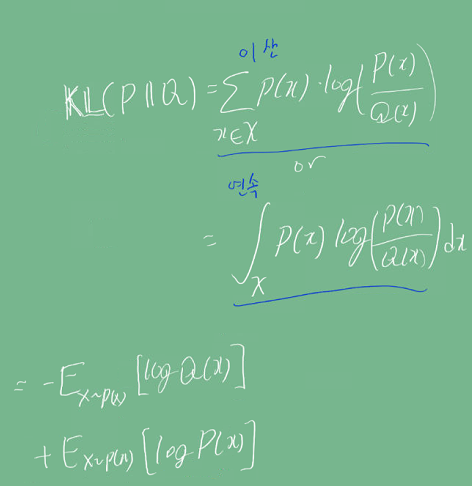 이산
KL(P||Q) = ∑_{x∈X} P(x)·log(P(x)/Q(x))
or
연속
= ∫_X P(x) log(P(x)/Q(x)) dx
= -E_{x~p(x)} [log Q(x)]
+ E_{x~p(x)} [log P(x)]